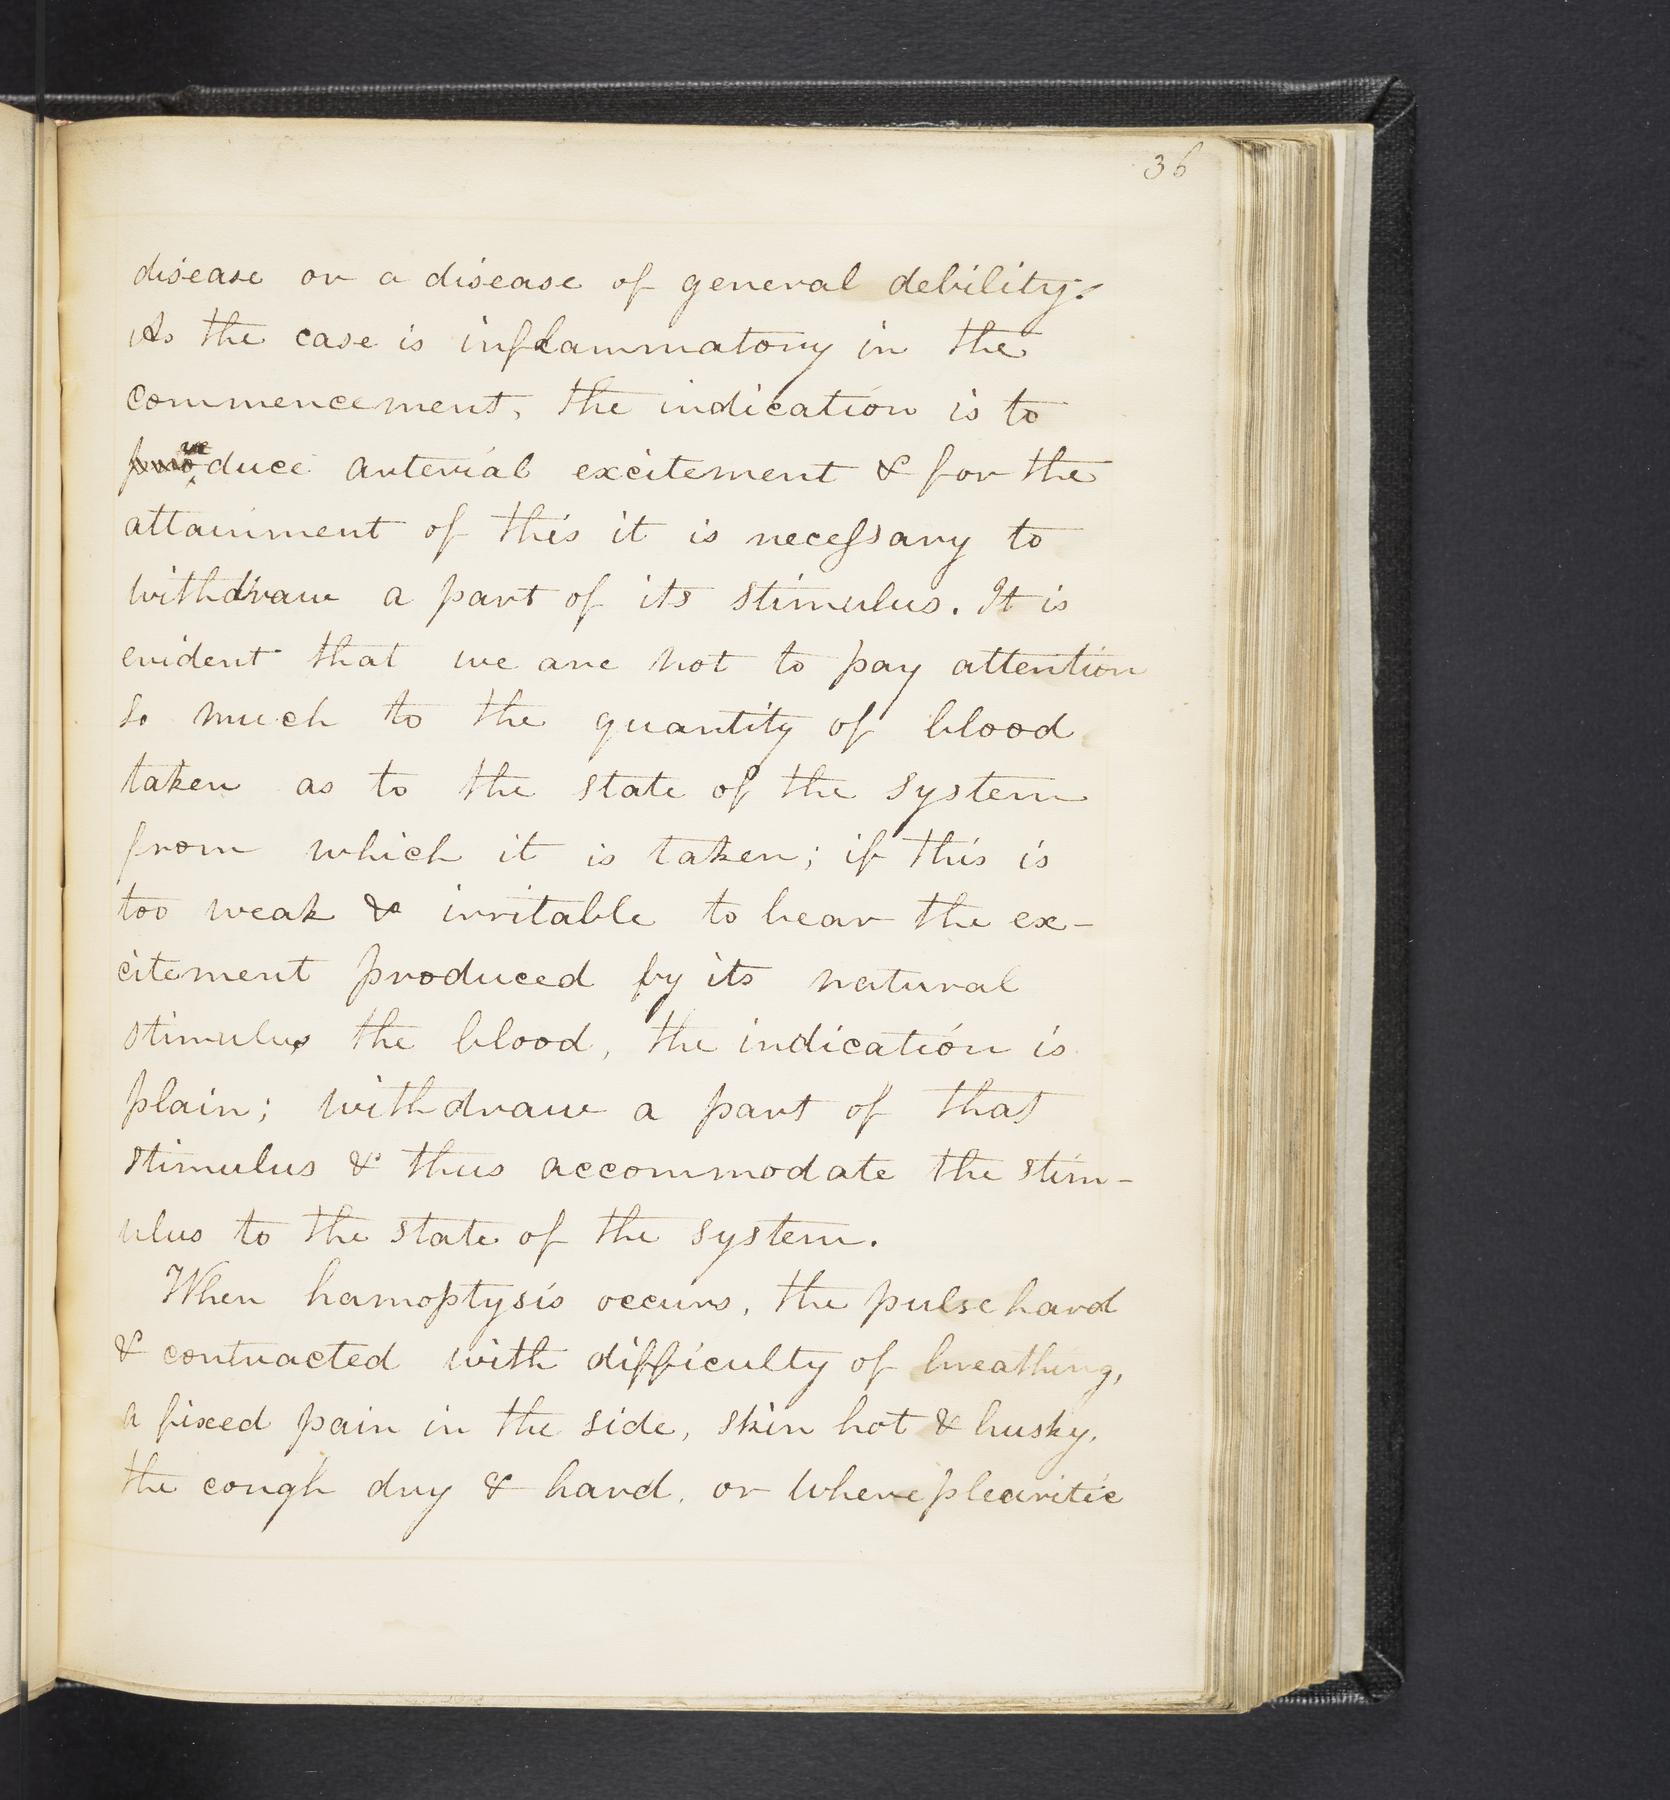 36
disease or a disease of general debility.
As the case is inflammatory in the
commencement, the indication is to
reduce arterial excitement & for the
attainment of this it is necessary to
withdraw a part of its stimulus. It is
evident that we are not to pay attention
so much to the quantity of blood
taken as to the state of the system
from which it is taken; if this is
too weak & irritable to bear the ex-
citement produced by its natural
stimulus the blood, the indication is
plain; withdraw a part of that
stimulus & thus accommodate the stim-
ulus to the state of the system.
When hamoptysis occurs, the pulse hard
& contracted with difficulty of breathing,
a fixed pain in the side, skin hot & husky,
the cough dry & hard, or where pleuritic